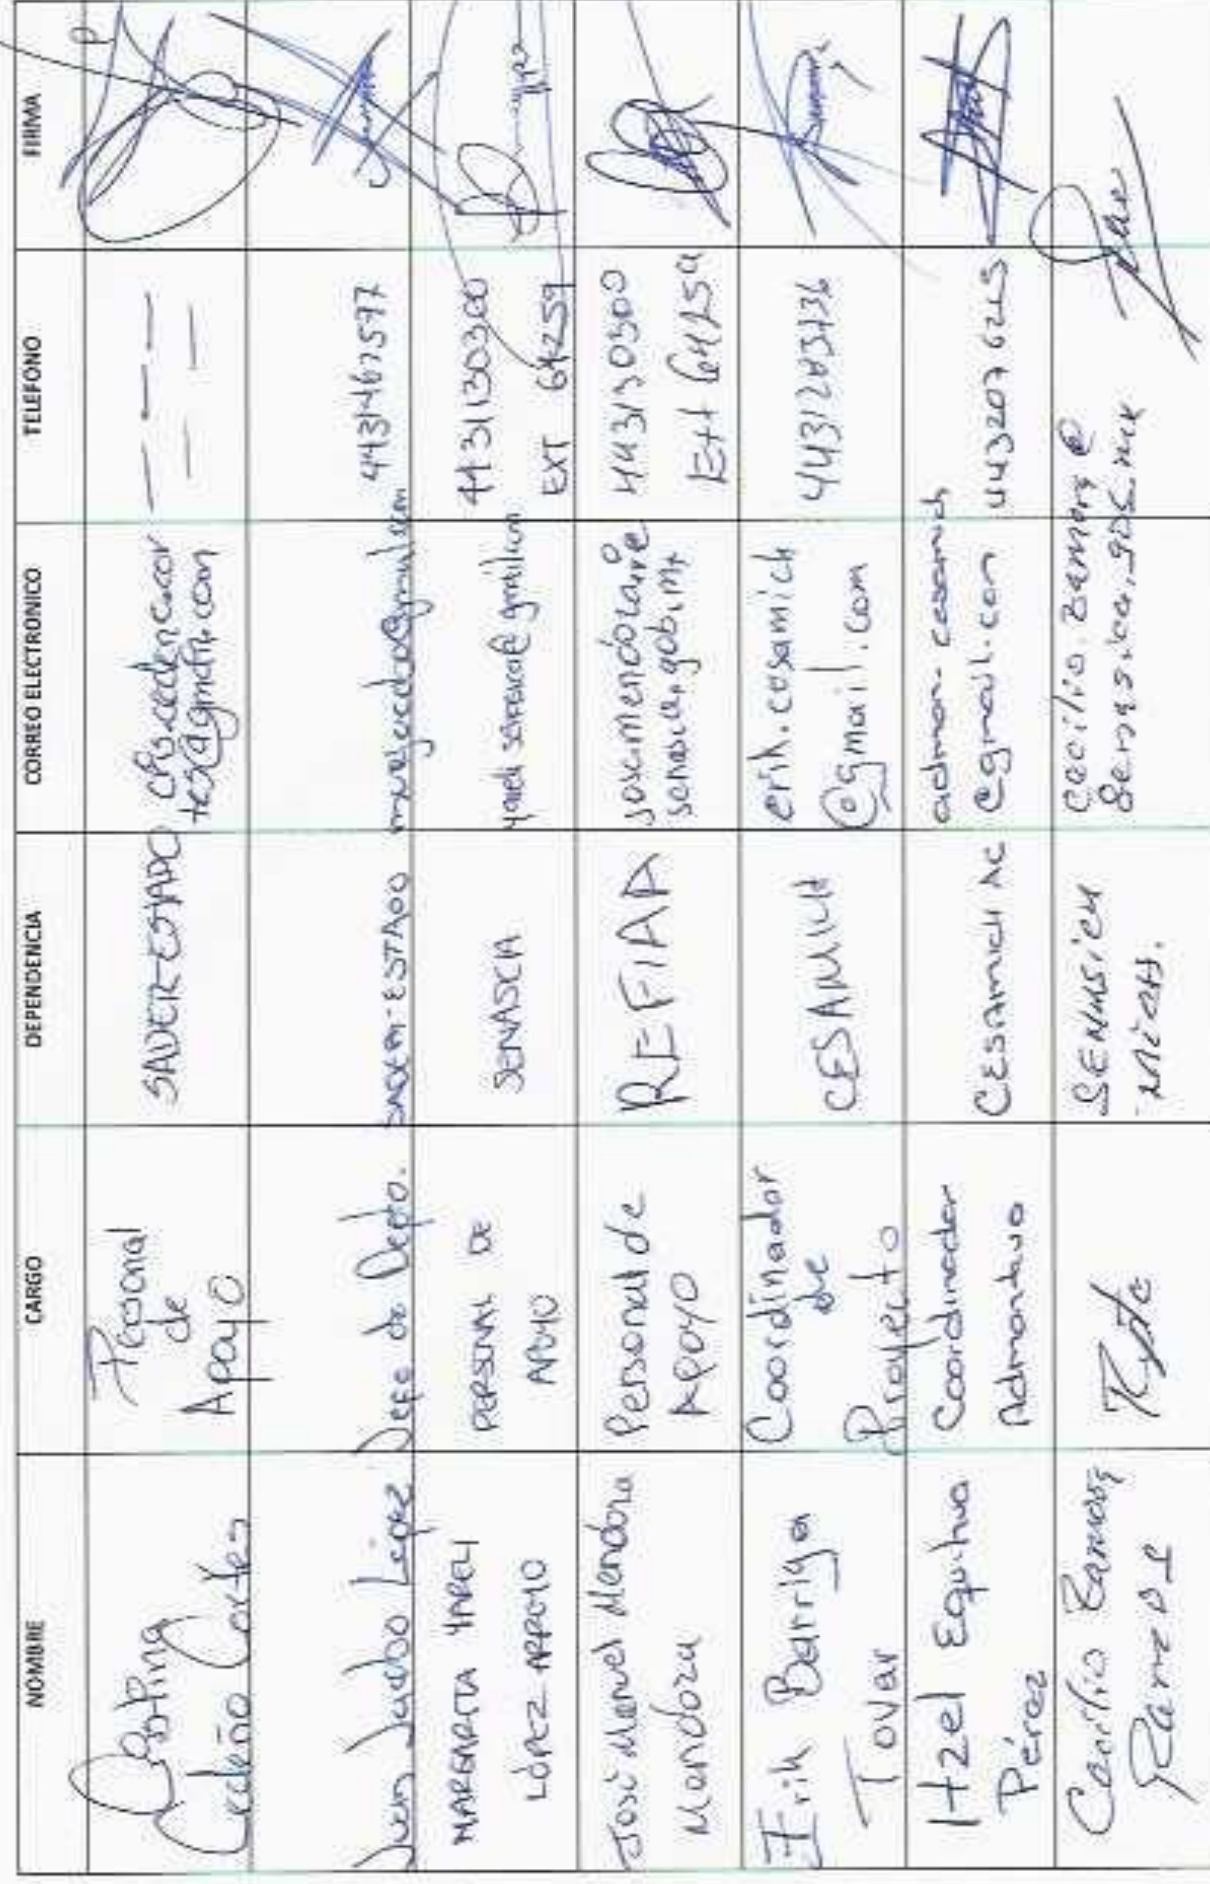 NOMBRE CARGO DEPENDENCIA CORREO ELECTRONICO TELEFONO FIRMA
Cristina
Cedeño Cortes
Personal
de
Apoyo
SADER-ESTADO
Juan Jurado López
Jefe de Depto.
SADER-ESTADO
MARGARITA YARELI
LÓPEZ ARROYO
PERSONAL DE
APOYO
SENASICA
4431130300
EXT 64259
José Manuel Mendoza
Mendoza
Personal de
Apoyo
REFIAA
4431130300
Ext 64259
Erik Barriga
Tovar
Coordinador
de
Proyecto
CESAMICH
erik.cesamich
@gmail.com
4431283736
Itzel Equihua
Pérez
Coordinador
Admontivo
CESAMICH AC
admon.cesamich
@gmail.com
4432076265
Cecilio Zamora
Ramos
Rpte
SENASICA
MICH.
cecilio.zamora@
senasica.gob.mx